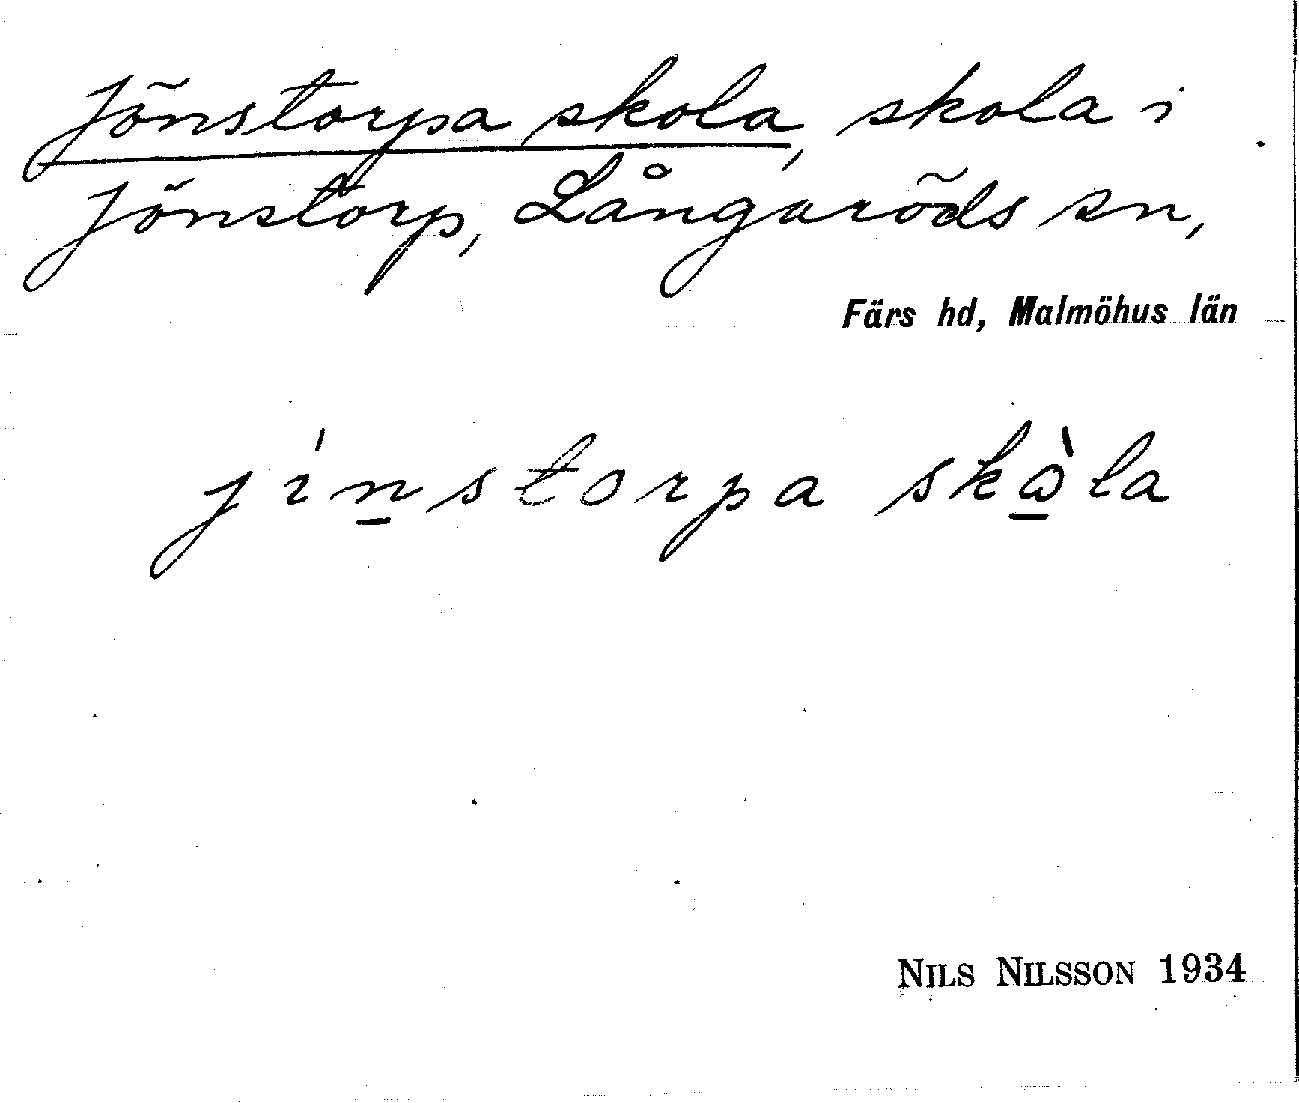 Jönstorpa skola, skola i
Jönstorp, Långaröds sn,
Färs hd, Malmöhus län
jı́n̲storpa skὼ̲la
NILS NILSSON 1934